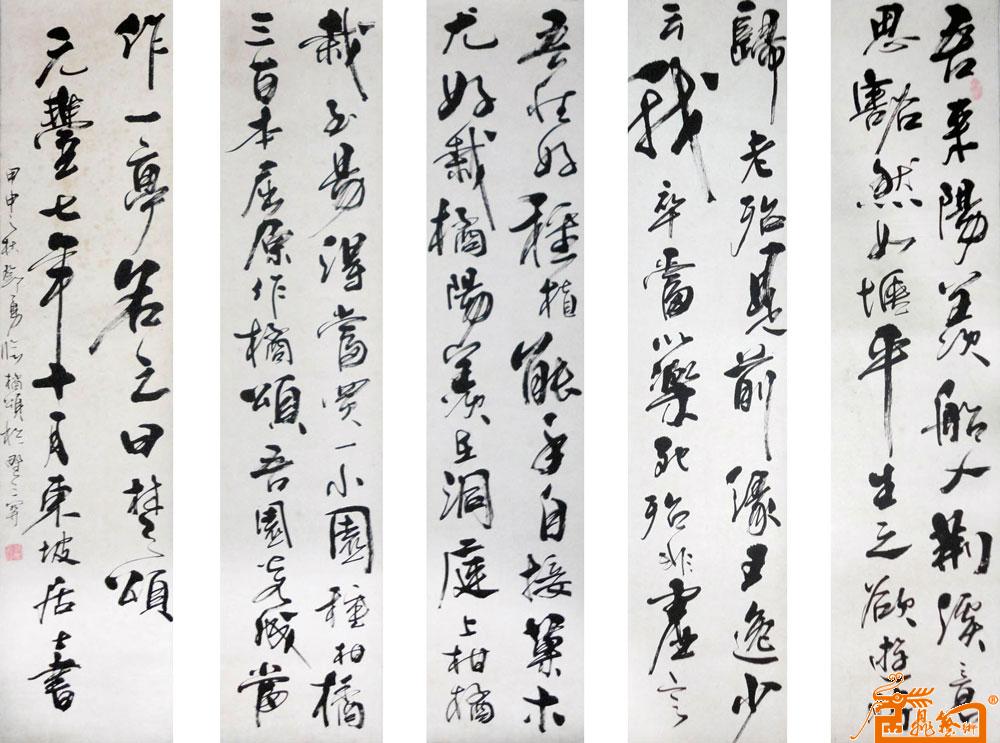 吾來陽羨船入荊溪意
思豁然如愜平生之欲逝將
歸老殆是前緣王逸少
云我卒當以樂死殆非虛言
吾性好種植能手自接菓木
尤好栽橘陽羨在洞庭上柑橘
栽至易得當買一小園種柑橘
三百本屈原作橘頌吾園若成當
作一亭名之曰楚頌
元豐七年十月東坡居士書
甲申之秋鄧勇臨橘頌於